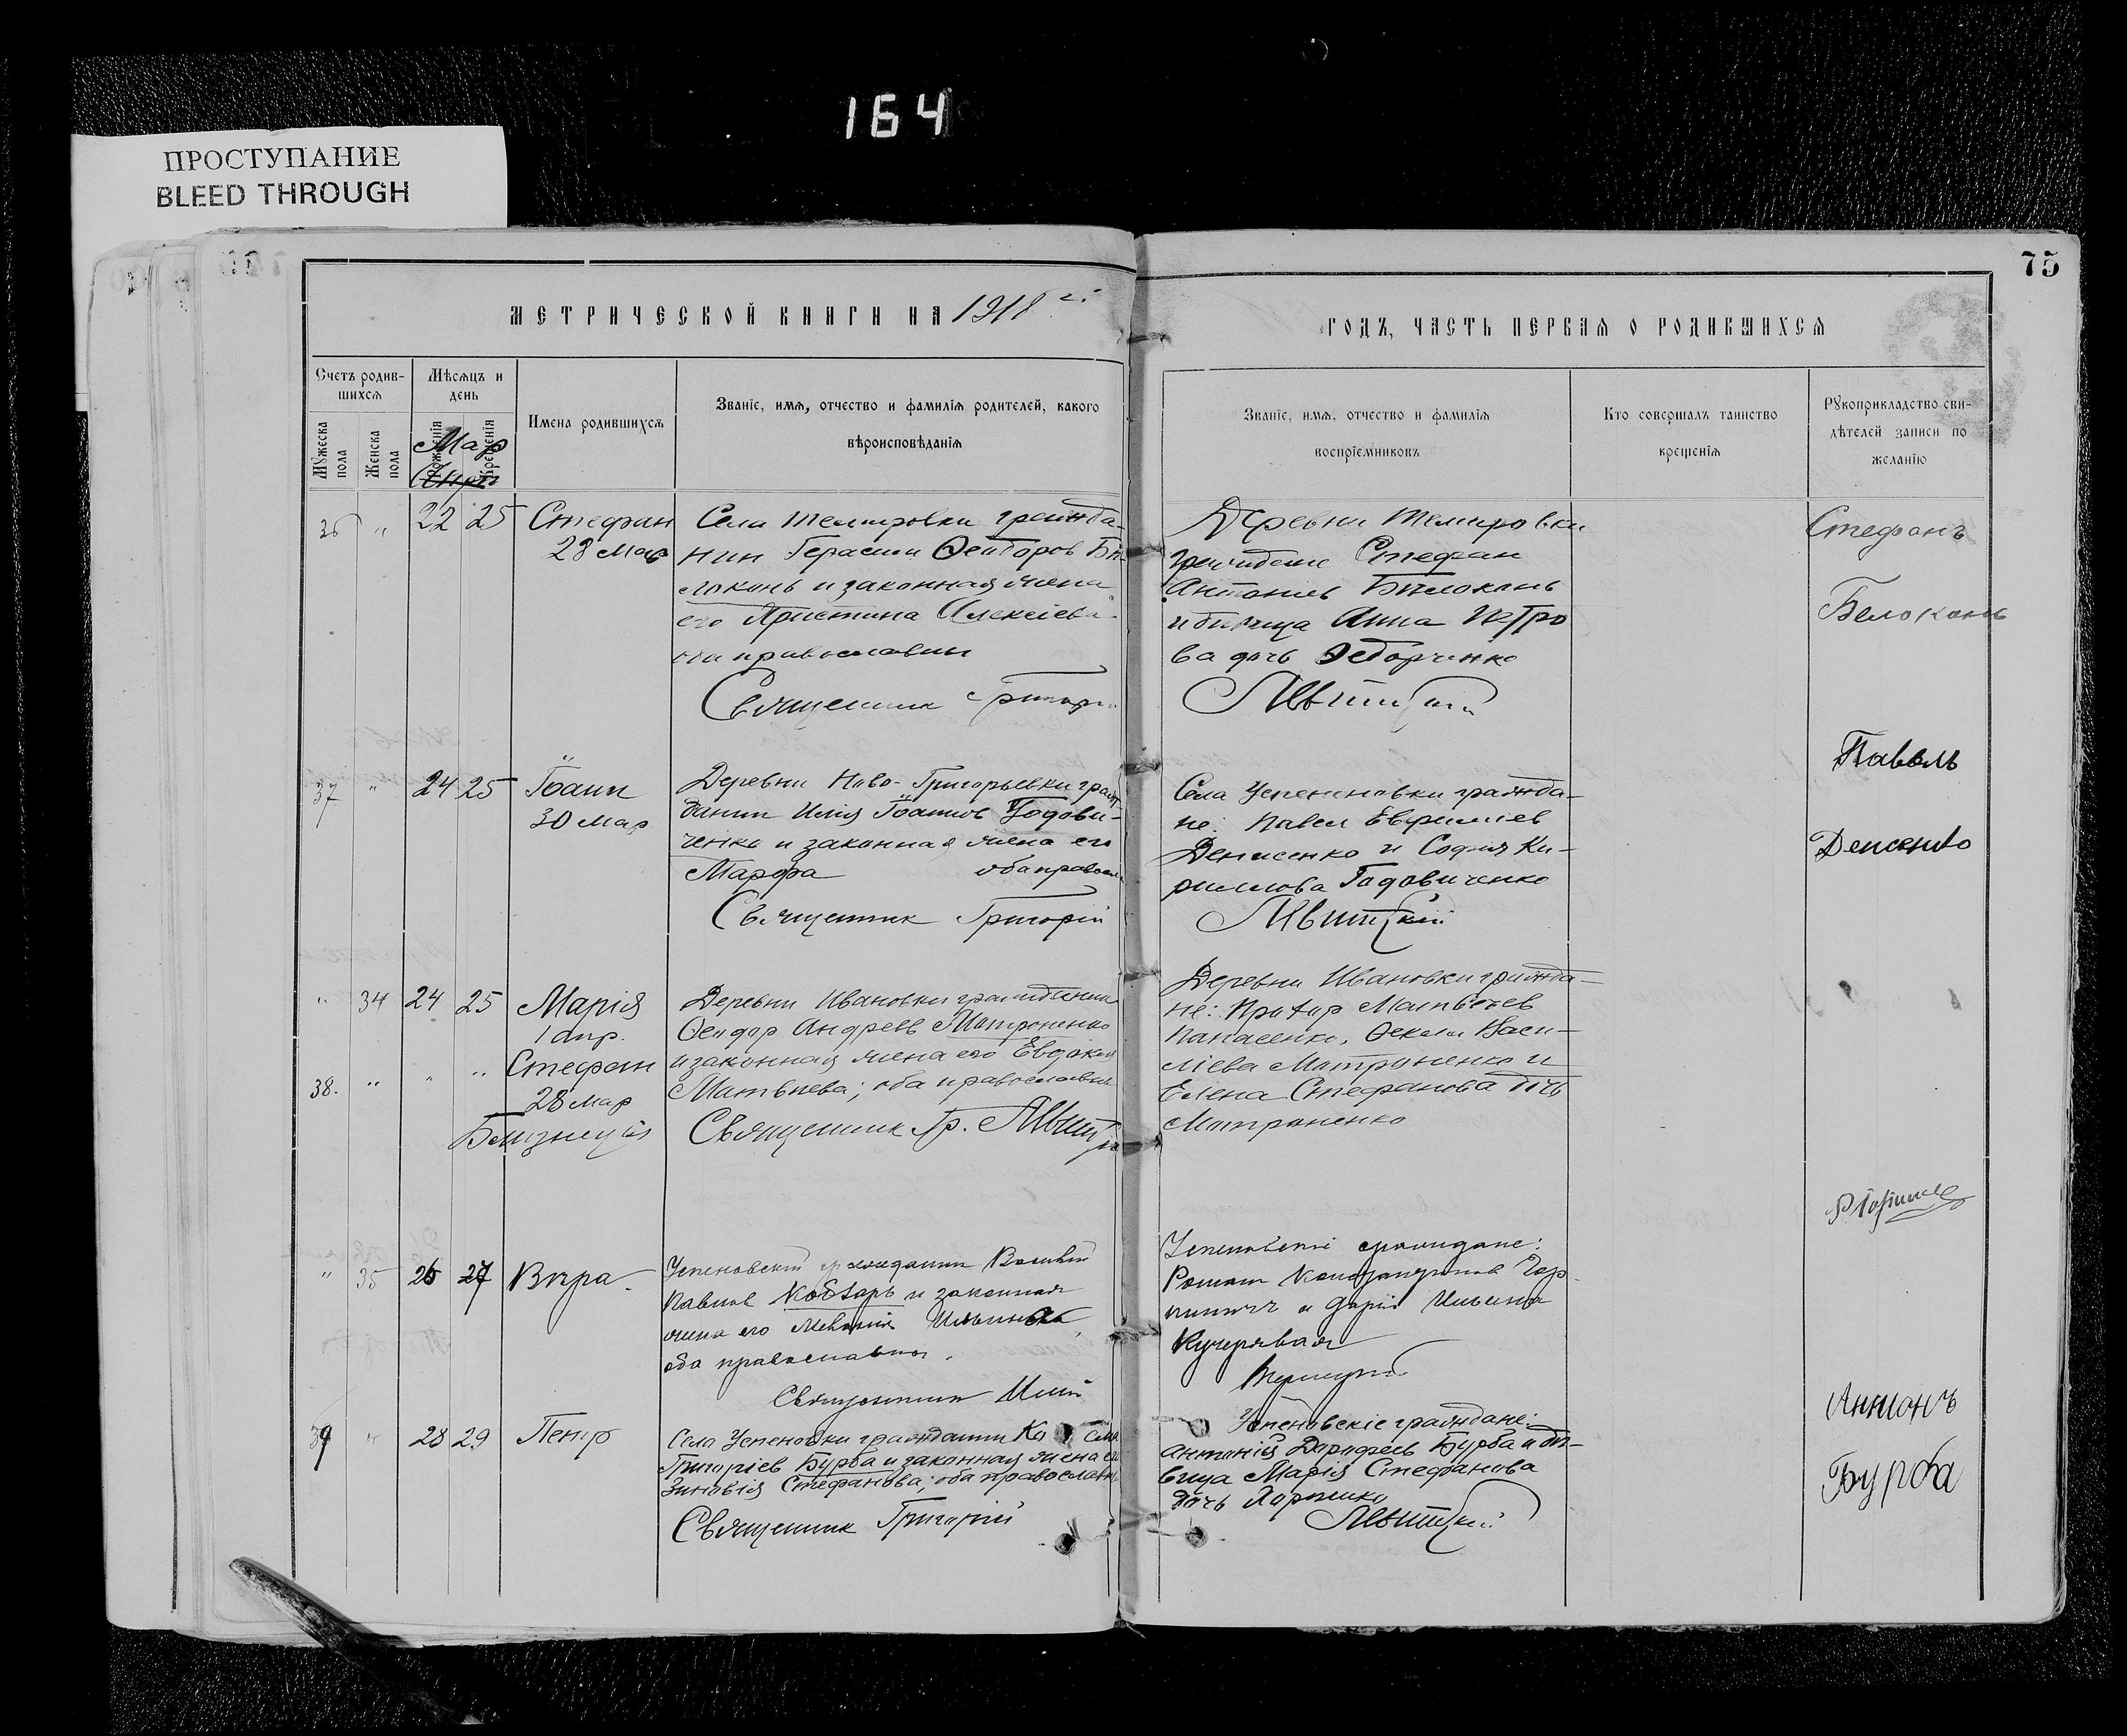 164
ПРОСТУПАНИЕ
BLEED THROUGH
75
МЕТРИЧЕСКОЙ КНИГИ НА 1918 г.
ГОДЪ, ЧАСТЬ ПЕРВАЯ О РОДИВШИХСЯ
Счетъ родив-
шихся
Мужеска пола
Женска пола
Мѣсяцъ и
день
Рожденія
Крещенія
Мар
Имена родившихся
Званіе, имя, отчество и фамилія родителей, какого
вѣроисповѣданія
Званіе, имя, отчество и фамилія
воспріемниковъ
Кто совершалъ таинство
крещенія
Рукоприкладство сви-
дѣтелей записи по
желанію
36 " 22 25 Стефан
28 Мар
Села Темировки гражда-
нин Герасим Феодоров Бѣ-
локонь и законная жена
его Христина Алексіева
оба православны
Священник Григорій
Деревни Темировки
граждане Стефан
Антоніев Бѣлоконь
и дѣвица Анна Петро
ва дочь Федорченко
Лѣвитскій
Стефанъ
Белоконь
37 " 24 25 Іоанн
30 Мар
Деревни Ново-Григорьевки граж
данин Илія Іоаннов Годови-
ченко и законная жена его
Марфа оба правосл
Священник Григорій
Села Успеновки гражда-
не: Павел Евфиміев
Денисенко и Софія Ки-
риллова Годовиченко
Лѣвитскій
Павелъ
Денсенко
" 34 24 25 Марія
1 апр.
38. " " " Стефан
28 мар
Близнецы
Деревни Ивановки гражданин
Феодор Андреев Матроненко
и законная жена его Евдокія
Матвѣева; оба православны
Священник Гр. Лѣвит
Деревни Ивановки гражда-
не: Матвѣев
Панасенко, Васи-
ліева Матроненко и
Елена Стефанова дочь
Матроненко
" 35 26 27 Вѣра
Успеновскій гражданин Василій
Павлов Кобзарь и законная
жена его Ильинова
оба православны.
Священник Илія
Успеновскіе граждане:
Роман Константинов
и Дарія Ильина
Кучерявая
39 " 28 29 Петр
Села Успеновки гражданин
Григоріев Бурба и законная жена его
Зиновія Стефанова; оба православны
Священник Григорій
Успеновскіе граждане:
Антоній Дорофеев Бурба и дѣ-
вица Марія Стефанова
дочь
Лѣвитскій
Антонъ
Бурба